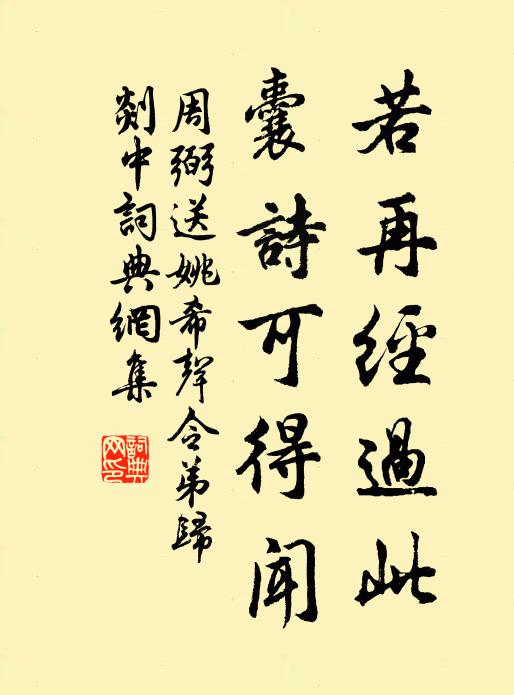 若再經過此
囊詩可得聞
周弼送姚希聲令弟歸
剡中詞典網集
詞典网印